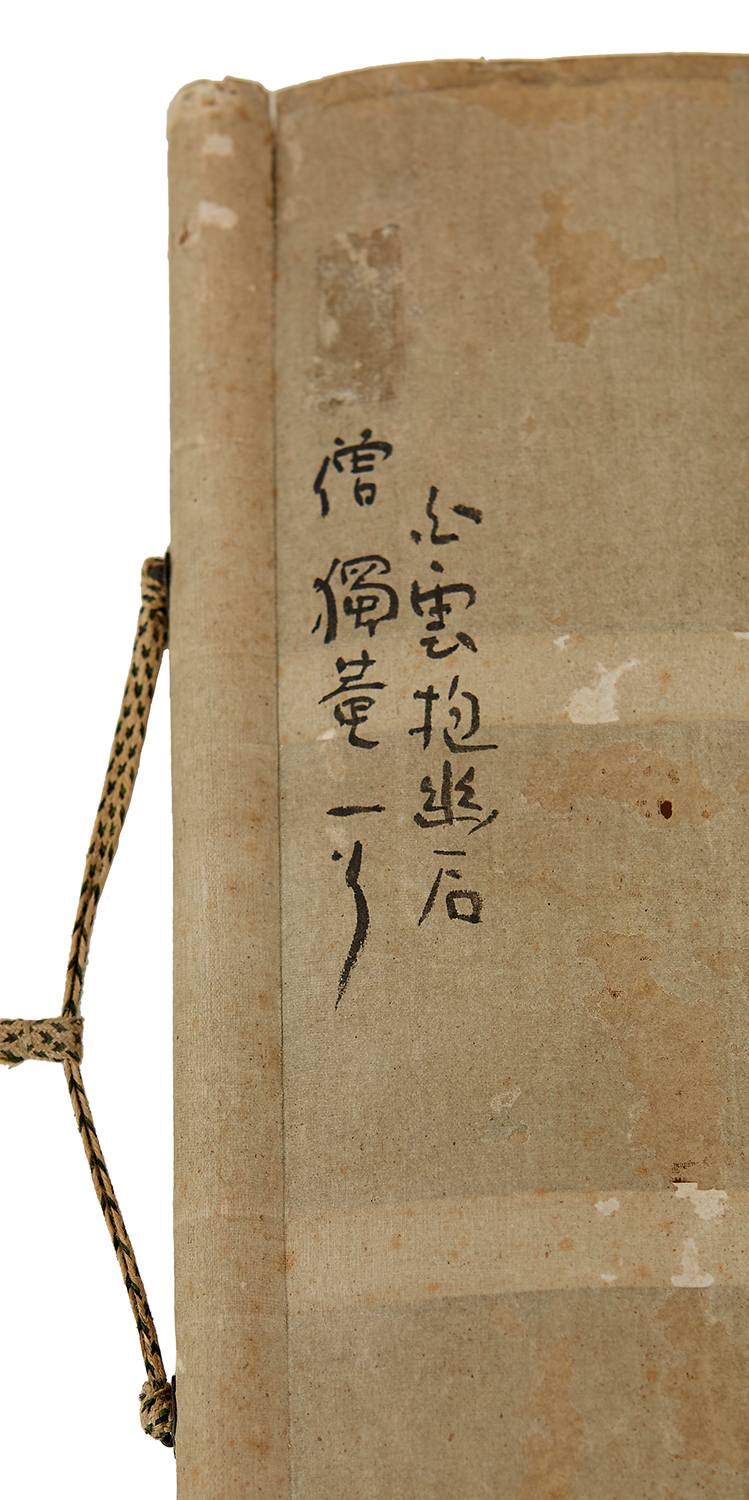 白雲抱幽石
僧獨菴一行